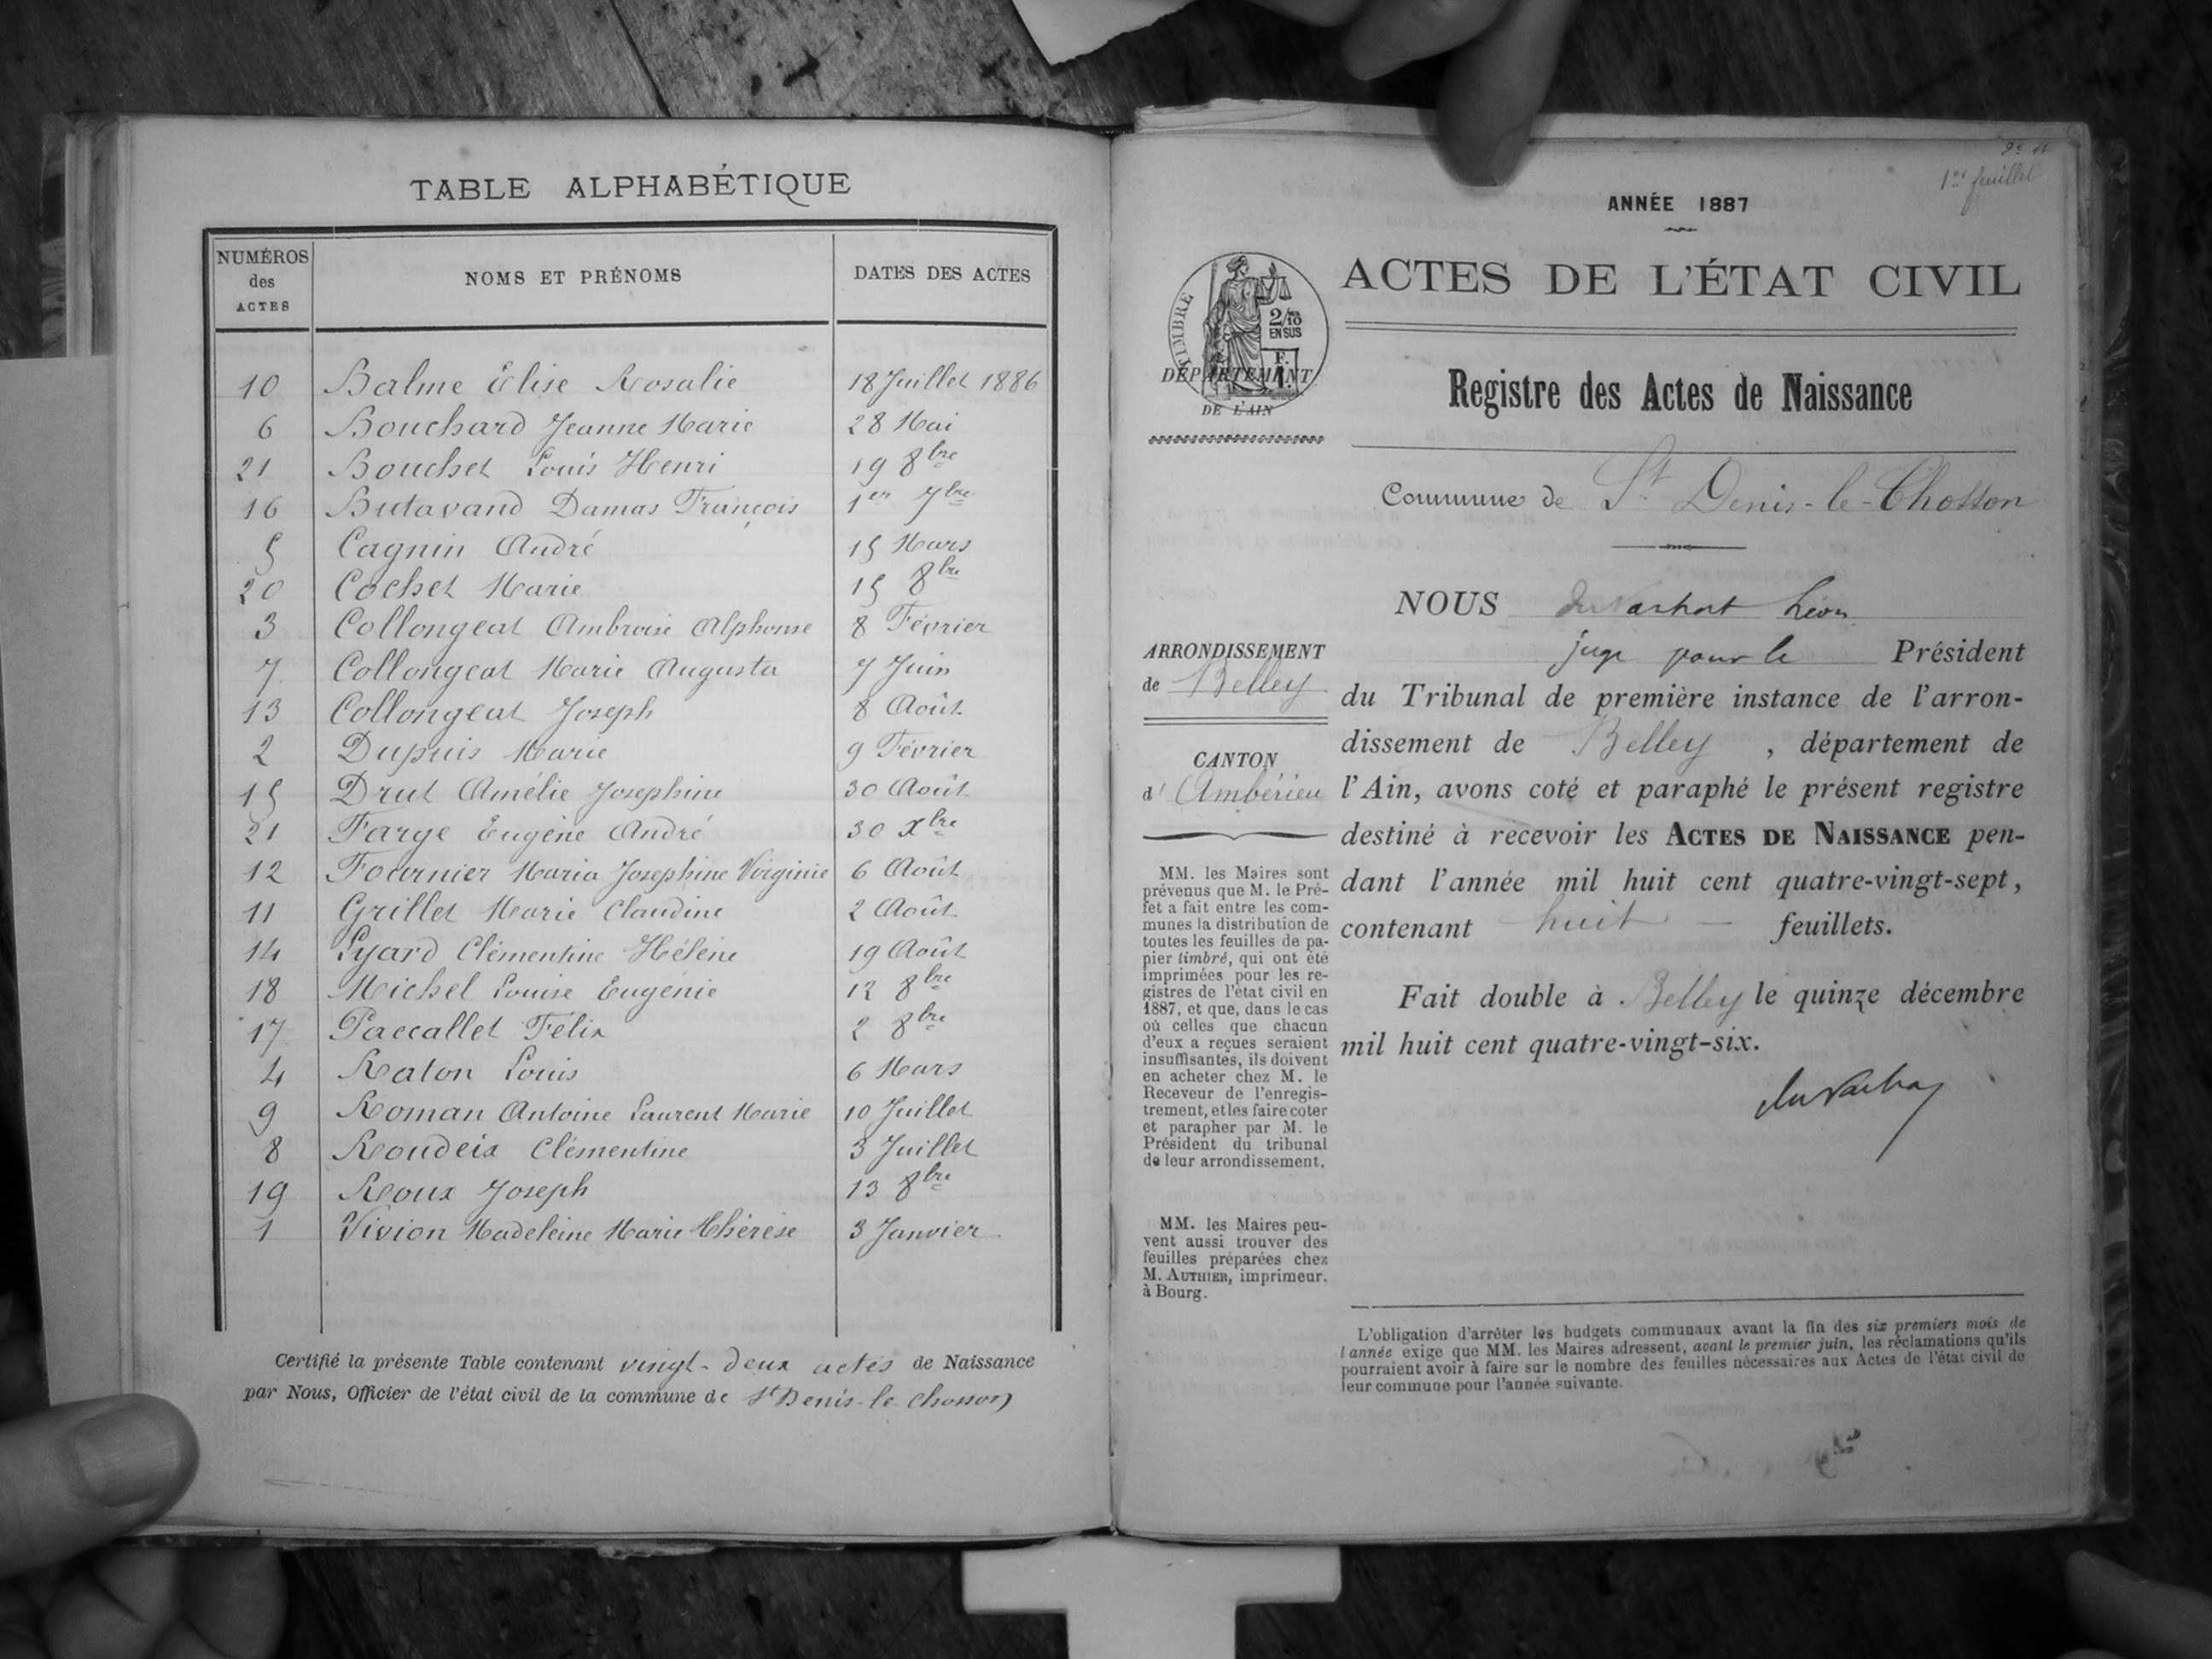 TABLE ALPHABÉTIQUE
NUMÉROS des ACTES NOMS ET PRÉNOMS DATES DES ACTES
10 Balme Elise Rosalie 18 Juillet 1886
6 Bouchard Jeanne Marie 28 Mai
21 Bouchet Louis Henri 19 8bre
16 Butavand Damas François 1er 7bre
5 Cagnin André 15 Mars
20 Cochet Marie 15 8bre
3 Collongeat Ambroise Alphonse 8 Février
7 Collongeat Marie Augusta 7 Juin
13 Collongeat Joseph 8 Août
2 Dupuis Marie 9 Février
15 Drut Amélie Josephine 30 Août
21 Farge Eugène André 30 Xbre
12 Fournier Maria Josephine Virginie 6 Août
11 Grillet Marie Claudine 2 Août
14 Lyard Clémentine Hélène 19 Août
18 Michel Louise Eugénie 12 8bre
17 Paccallet Félix 2 8bre
4 Raton Louis 6 Mars
9 Roman Antoine Laurent Marie 10 Juillet
8 Roudeix Clémentine 3 Juillet
19 Roux Joseph 13 8bre
1 Vivion Madeleine Marie Thérèse 3 Janvier
Certifié la présente Table contenant vingt-deux actes de Naissance
par Nous, Officier de l'état civil de la commune de St Denis-le-Chosson
1er feuillet
ANNÉE 1887
ACTES DE L'ÉTAT CIVIL
TIMBRE
2/10
EN SUS
DÉPARTEMENT
DE L'AIN
Registre des Actes de Naissance
Commune de St Denis-le-Chosson
ARRONDISSEMENT
de Belley
CANTON
d' Ambérieu
MM. les Maires sont
prévenus que M. le Pré-
fet a fait entre les com-
munes la distribution de
toutes les feuilles de pa-
pier timbré, qui ont été
imprimées pour les re-
gistres de l'état civil en
1887, et que, dans le cas
où celles que chacun
d'eux a reçues seraient
insuffisantes, ils doivent
en acheter chez M. le
Receveur de l'enregis-
trement, et les faire coter
et parapher par M. le
Président du tribunal
de leur arrondissement.
MM. les Maires peu-
vent aussi trouver des
feuilles préparées chez
M. AUTHIER, imprimeur,
à Bourg.
NOUS Léon
juge pour le Président
du Tribunal de première instance de l'arron-
dissement de Belley, département de
l'Ain, avons coté et paraphé le présent registre
destiné à recevoir les ACTES DE NAISSANCE pen-
dant l'année mil huit cent quatre-vingt-sept,
contenant huit feuillets.
Fait double à Belley le quinze décembre
mil huit cent quatre-vingt-six.
L'obligation d'arrêter les budgets communaux avant la fin des six premiers mois de
l'année exige que MM. les Maires adressent, avant le premier juin, les réclamations qu'ils
pourraient avoir à faire sur le nombre des feuilles nécessaires aux Actes de l'état civil de
leur commune pour l'année suivante.